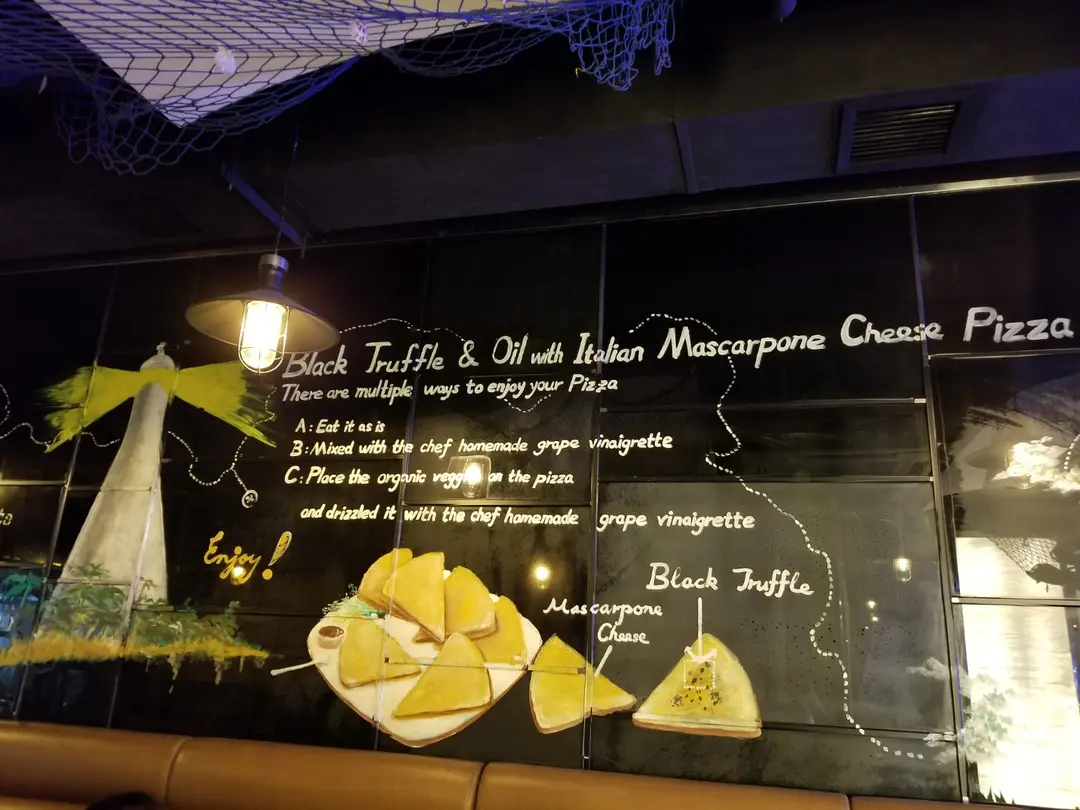 Black Truffle & Oil with Italian Mascarpone Cheese Pizza
There are multiple ways to enjoy your Pizza
A: Eat it as is
B: Mixed with the chef homemade grape vinaigrette
C: Place the organic veggies on the pizza
and drizzled it with the chef homemade grape vinaigrette
Enjoy!
Black Truffle
Mascarpone
Cheese